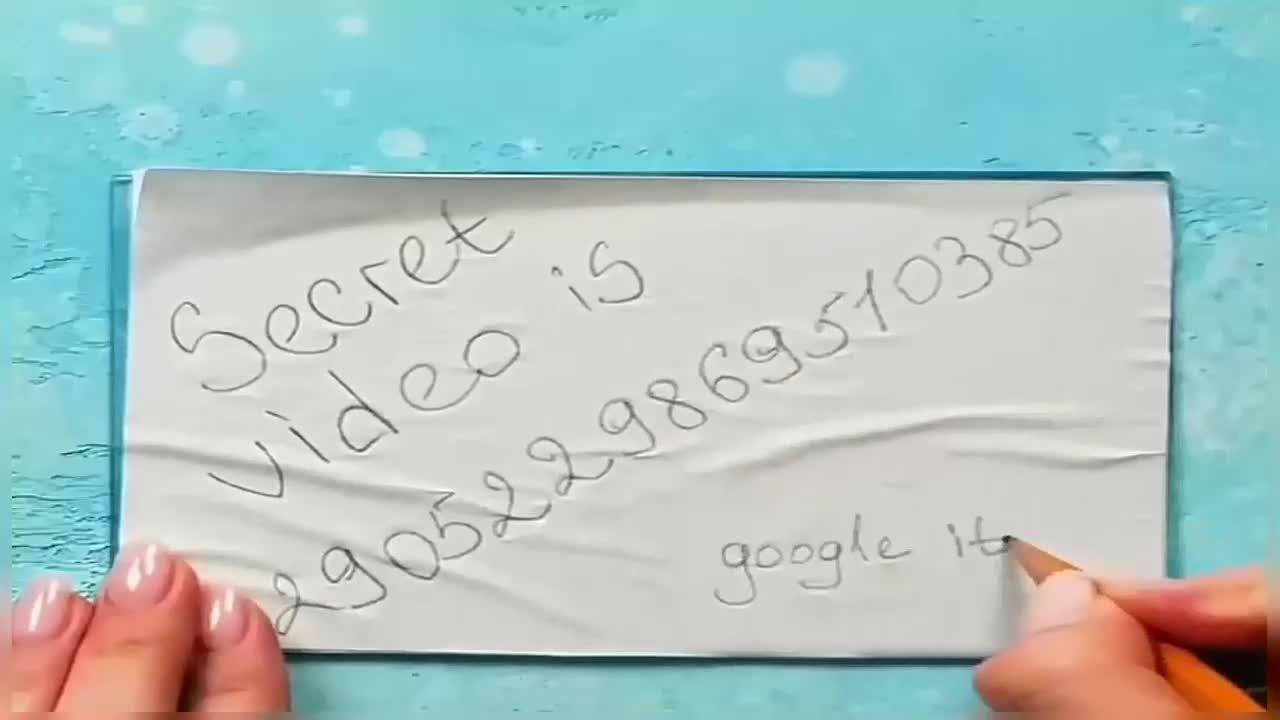 Secret
video is
2905229869510385
google it